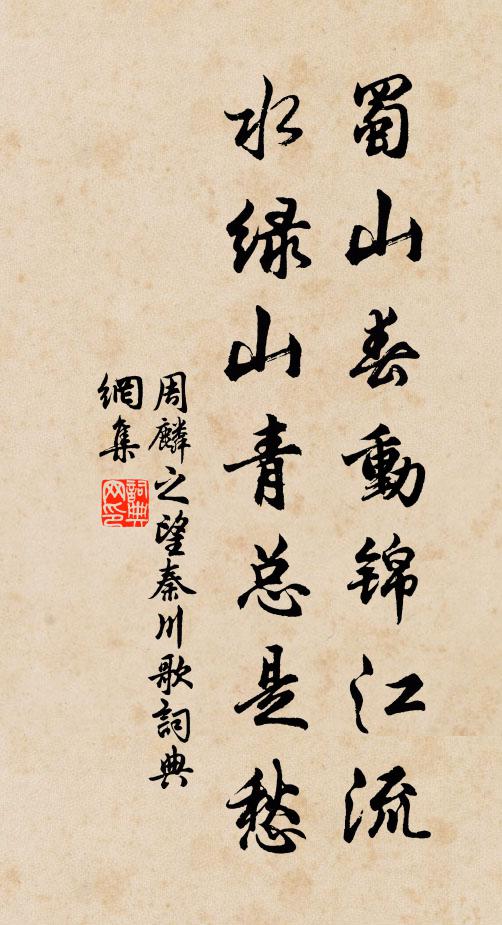 蜀山春動锦江流
水绿山青总是愁
周麟之望秦川歌詞典
網集
詞典
网印